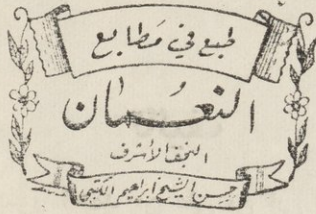 طبع في مَطابع
النعُمان
النجف الأشرف
حسن الشيخ ابراهيم الكتبي